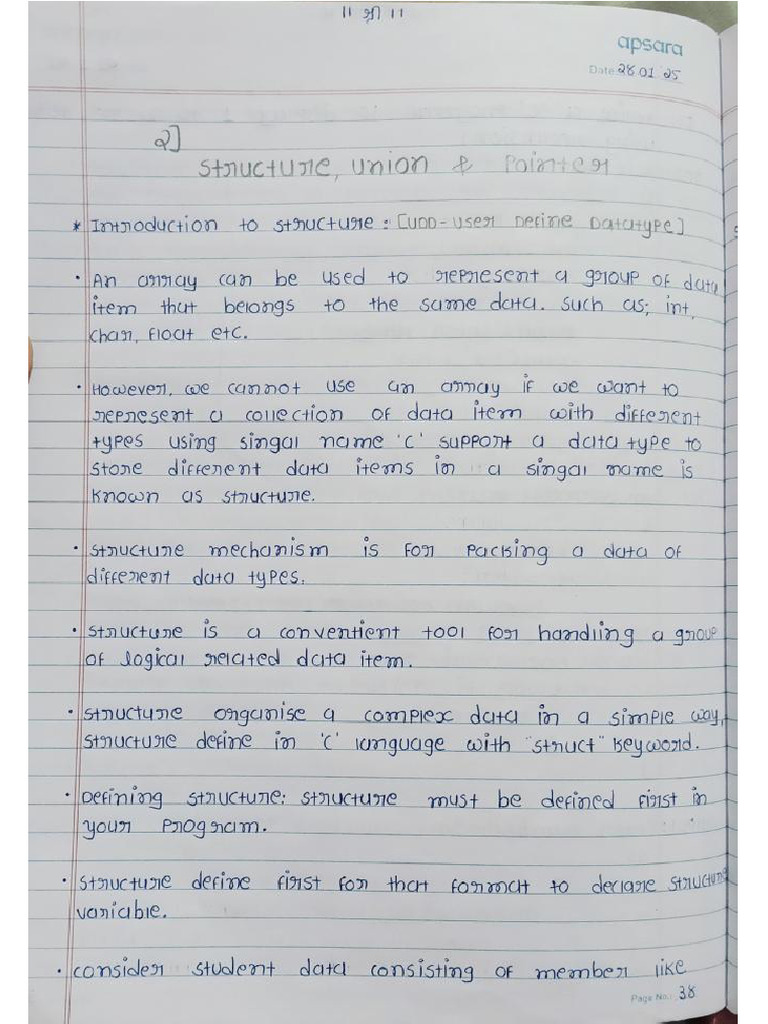 ॥ श्री ॥
apsara
Date 28 01 25
2]
Structure, Union & Pointer
* Introduction to structure : [UDD - User Define Datatype]
• An array can be used to represent a group of data
item that belongs to the same data. Such as; int,
char, float etc.
• However, we cannot use an array if we want to
represent a collection of data item with different
types using singal name 'C' support a data type to
store different data items in a singal name is
known as structure.
• structure mechanism is for packing a data of
different data types.
• structure is a conventient tool for handling a group
of logical related data item.
• structure organise a complex data in a simple way,
structure define in 'C' language with "struct" keyword.
• Defining structure: structure must be defined first in
your program.
• structure define first for that format to declare structure
variable.
• consider student data consisting of member like
Page No.: 38